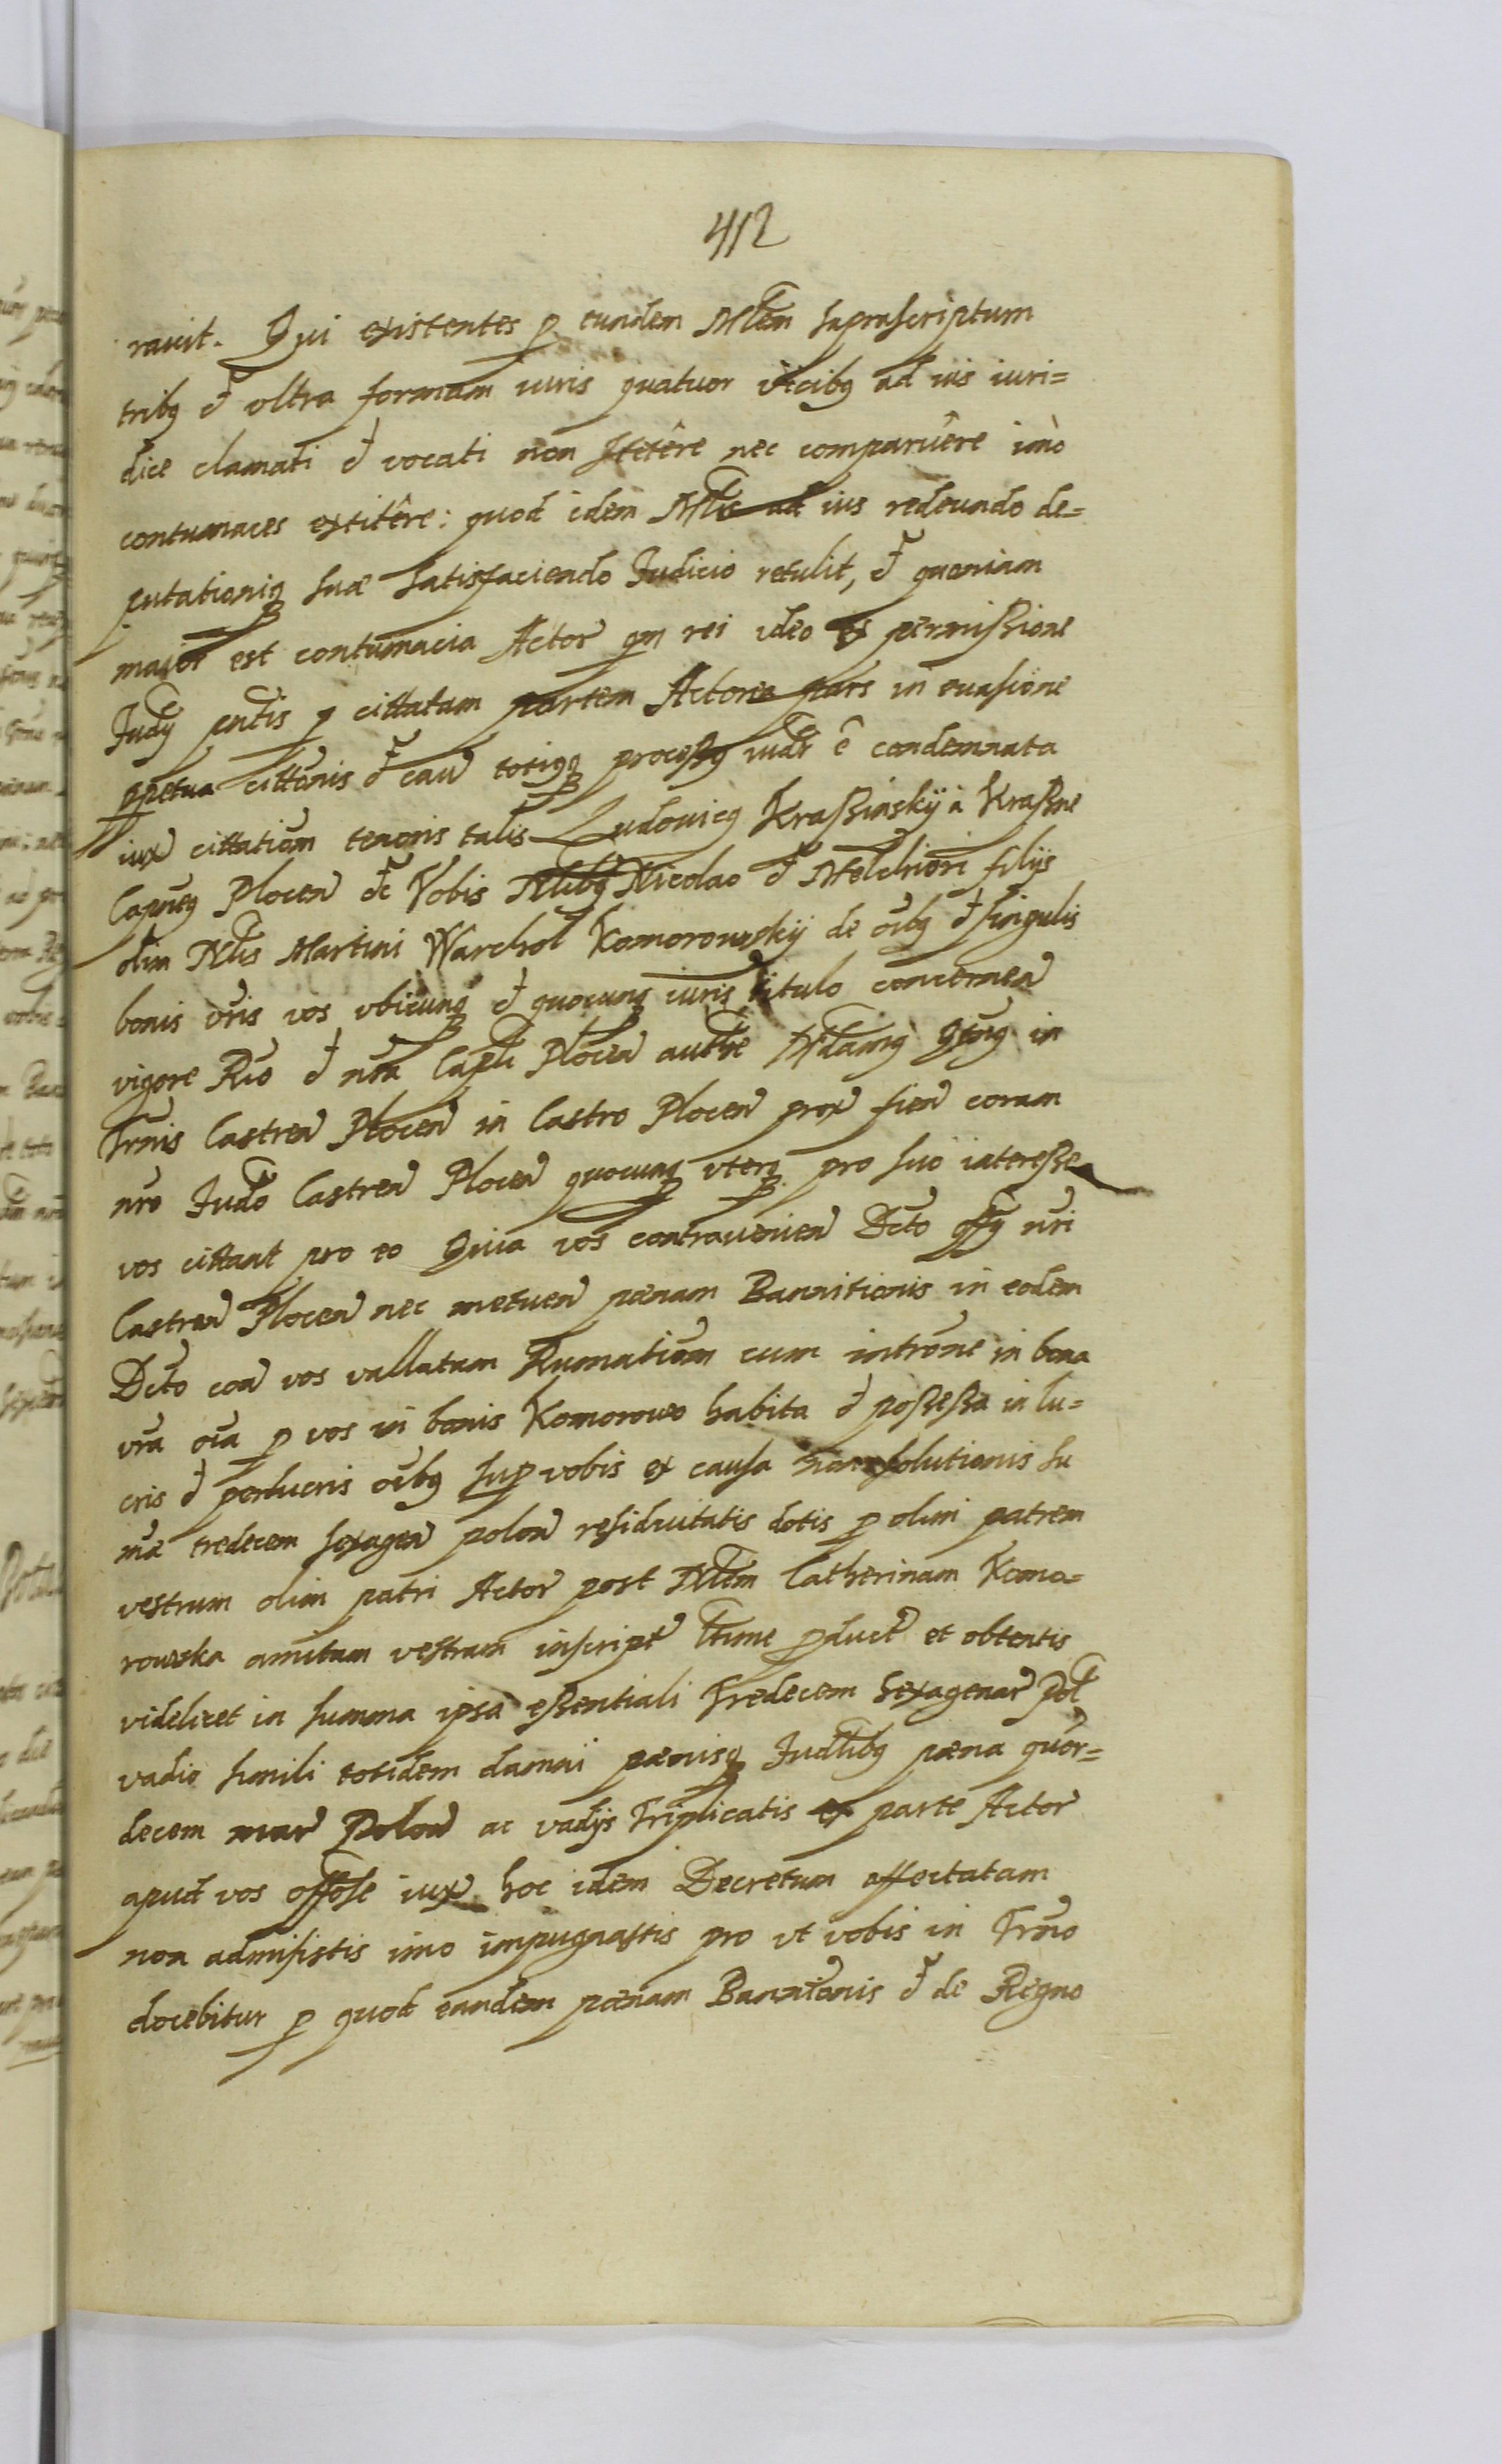 412
rauit. Qui existentes p eundem Mltem suprascriptum
tribq et vltra formam iuris quatuor vicibq ad ius iuri=
dice clamati et vocati non stetêre nec comparuêre imò
contumaces extitêre: quod idem Mlis ad ius redeundo de=
putationiq suæ satisfaciendo Iudicio retulit, et quoniam
maior est contumacia Actor qm rei ideo ex permissione
Iudy pntis p cittatam partem Actorea pars in euasione
ppetua cittonis et caus totiqq processq iudi ê condemnata
iux cittationem tenoris talis Ludouicq Krassinskÿ à Krassne
Capneq Plocen etc Vobis Nlibq Nicolao et Melchiori filÿs
olim Nlis Martini Warchoł Komorowskÿ de oibq et singulis
bonis vris vos vbicunq et quocunq iuris titulo concernen
vigore Rio et nra Capli Plocen authe Mdamq in
Trnis Castren Plocen in Castro Plocen prox fien coram
nro Iudo Castren Plocen quocunq vterq pro suo interesse
vos cittant pro eo Quia vos contrauenien Dcto offy nri
Castren Plocen nec metuen poenam Bannitionis in eodem
Dcto con vos vallatam Rumationem cum intrōne in bona
vra oia p vos in bonis Komorowo habita et possessa in lu=
cris et perlucris oibq sup vobis ex causa non solutionis su
mæ tredecem sexagen polon residuitatis dotis p olim patrem
vestrum olim patri Actor post Nlem Catherinam Komo=
rowska amitam vestram inscript ltime pduct et obtentis
videlicet in summa ipsa essentiali Tredecem sexagenar Pol
vadio simili totidem damni poenisq Iudlibq poena quor=
decem mar Polon ac vadÿs Triplicatis ex parte Actor
apud vos offose iux hoc idem Decretum affectatam
non admisistis imo impugnastis pro vt vobis in Trno
docebitur p quod eandem poenam Bannionis et de Regno